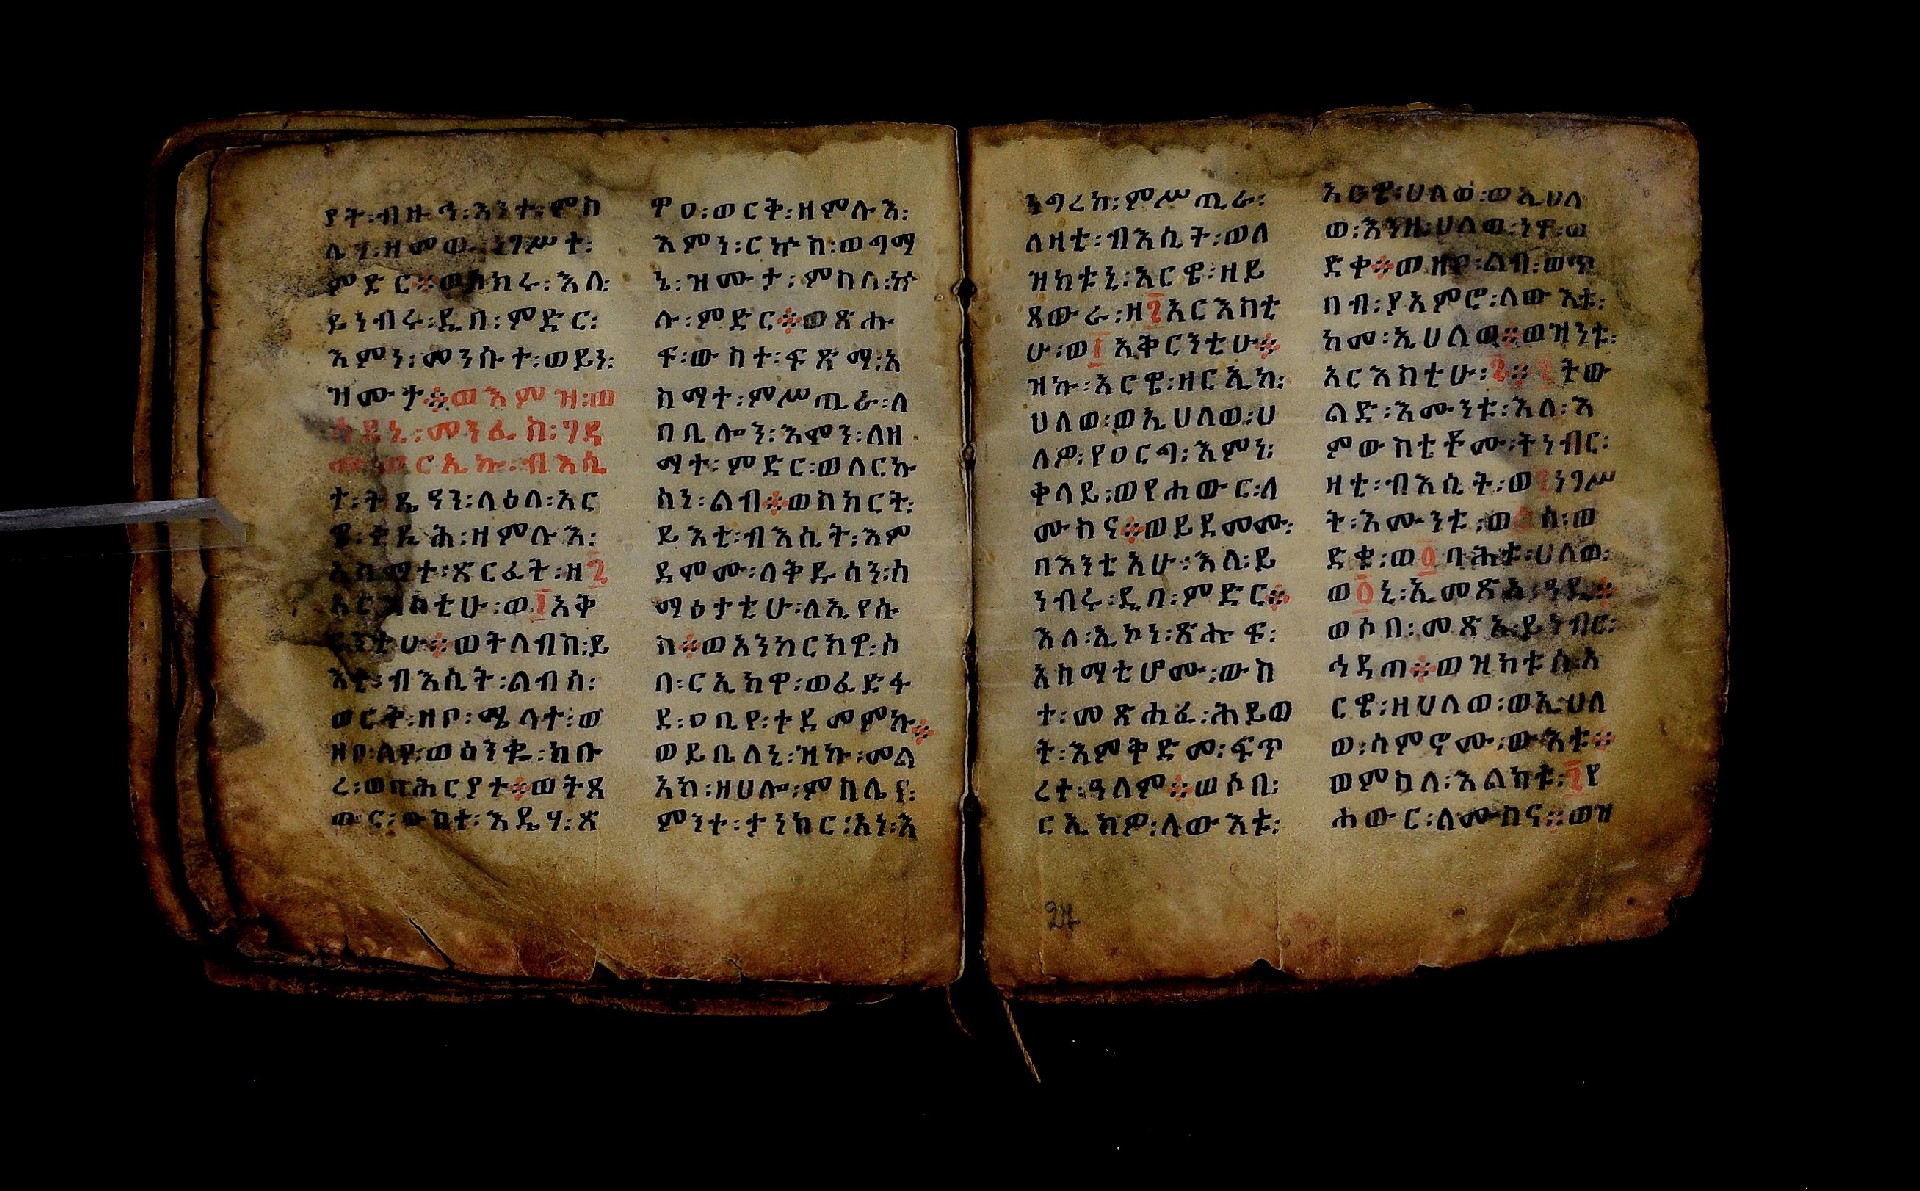 ያት፡ብዙኅ፡እንተ፡ምስ
ሌሃ፡ዘመወ፡ነገሥተ፡
ምድር።ወሰክሩ፡እለ፡
ይነብሩ፡ዲበ፡ምድር፡
እምነ፡መንሱተ፡ወይነ፡
ዝሙታ።ወእምዝ፡ወ
ሰደኒ፡መንፈስ፡ገዳ
መ፡ወርኢኩ፡ብእሲ
ተ፡ትዴዓን፡ላዕለ፡አር
ዌ፡ቀይሕ፡ዘምሉእ፡
አስማተ፡ጽርፈት፡ዘ፯
አርእስቲሁ፡ወ፲አቅ
ርንቲሁ።ወትለብስ፡ይ
እቲ፡ብእሲት፡ልብሰ፡
ወርቅ፡ዘቦ፡ሜላተ፡ወ
ዘቦ፡ልየ፡ወዕንቈ፡ክቡ
ረ፡ወባሕርያተ።ወትጸ
ውር፡ውስተ፡እዴሃ፡ጽ
ዋዐ፡ወርቅ፡ዘምሉእ፡
እምነ፡ርኵስ፡ወጣማ
ኔ፡ዝሙታ፡ምስለ፡ኵ
ሉ፡ምድር።ወጽሑ
ፍ፡ውስተ፡ፍጽማ፡አ
ስማት፡ምሥጢራ፡ለ
ባቢሎን፡እምነ፡ለዘ
ማት፡ምድር፡ወለርኩ
ሰን፡ልብ።ወሰክርት፡
ይእቲ፡ብእሲት፡እም
ደምሙ፡ለቅዱሳን፡ሰ
ማዕታቲሁ፡ለኢየሱ
ስ።ወአንከርክዋ፡ሶ
በ፡ርኢክዋ፡ወፈድፋ
ደ፡ዐቢየ፡ተደመምኩ።
ወይቤለኒ፡ዝኩ፡መል
አክ፡ዘሀሎ፡ምስሌየ፡
ምንተ፡ታነክር፡አነ፡እ
ነግረከ፡ምሥጢራ፡
ለዛቲ፡ብእሲት፡ወለ
ዝክቱኒ፡አርዌ፡ዘይ
ጸውራ፡ዘ፯አርእስቲ
ሁ፡ወ፲አቅርንቲሁ።
ዝኩ፡አርዌ፡ዘርኢከ፡
ሀለወ፡ወኢሀለወ፡ሀ
ለዎ፡የዐርግ፡እምነ፡
ቀላይ፡ወየሐውር፡ለ
ሙስና።ወይደመሙ፡
በእንቲአሁ፡እለ፡ይ
ነብሩ፡ዲበ፡ምድር።
እለ፡ኢኮነ፡ጽሑፍ፡
አስማቲሆሙ፡ውስ
ተ፡መጽሐፈ፡ሕይወ
ት፡እምቅድመ፡ፍጥ
ረተ፡ዓለም።ወሶበ፡
ርኢክዎ፡ለውእቱ፡
አርዌ፡ሀለወ፡ወኢሀለ
ወ፡እንዘ፡ሀለወ፡ነዋ፡ወ
ድቀ።ወዘቦ፡ልብ፡ወጥ
በብ፡ያአምሮ፡ለውእቱ፡
ከመ፡ኢሀለወ።ወዝንቱ፡
አርእስቲሁ፡፯።፯ትው
ልድ፡እሙንቱ፡እለ፡እ
ምውስቲቶሙ፡ትነብር፡
ዛቲ፡ብእሲት፡ወ፯ነገሥ
ት፡እሙንቱ፡ወ፭ሰ፡ወ
ድቁ፡ወ፩ባሕቱ፡ሀለወ፡
ወ፩ኒ፡ኢመጽአ፡ዓዲ።
ወሶበ፡መጽአ፡ይነብር፡
ኅዳጠ።ወዝክቱሰ፡አ
ርዌ፡ዘሀለወ፡ወኢሀለ
ወ፡ሳምኖሙ፡ውእቱ።
ወምስለ፡እልክቱ፡፯የ
ሐውር፡ለሙስና።ወዝ